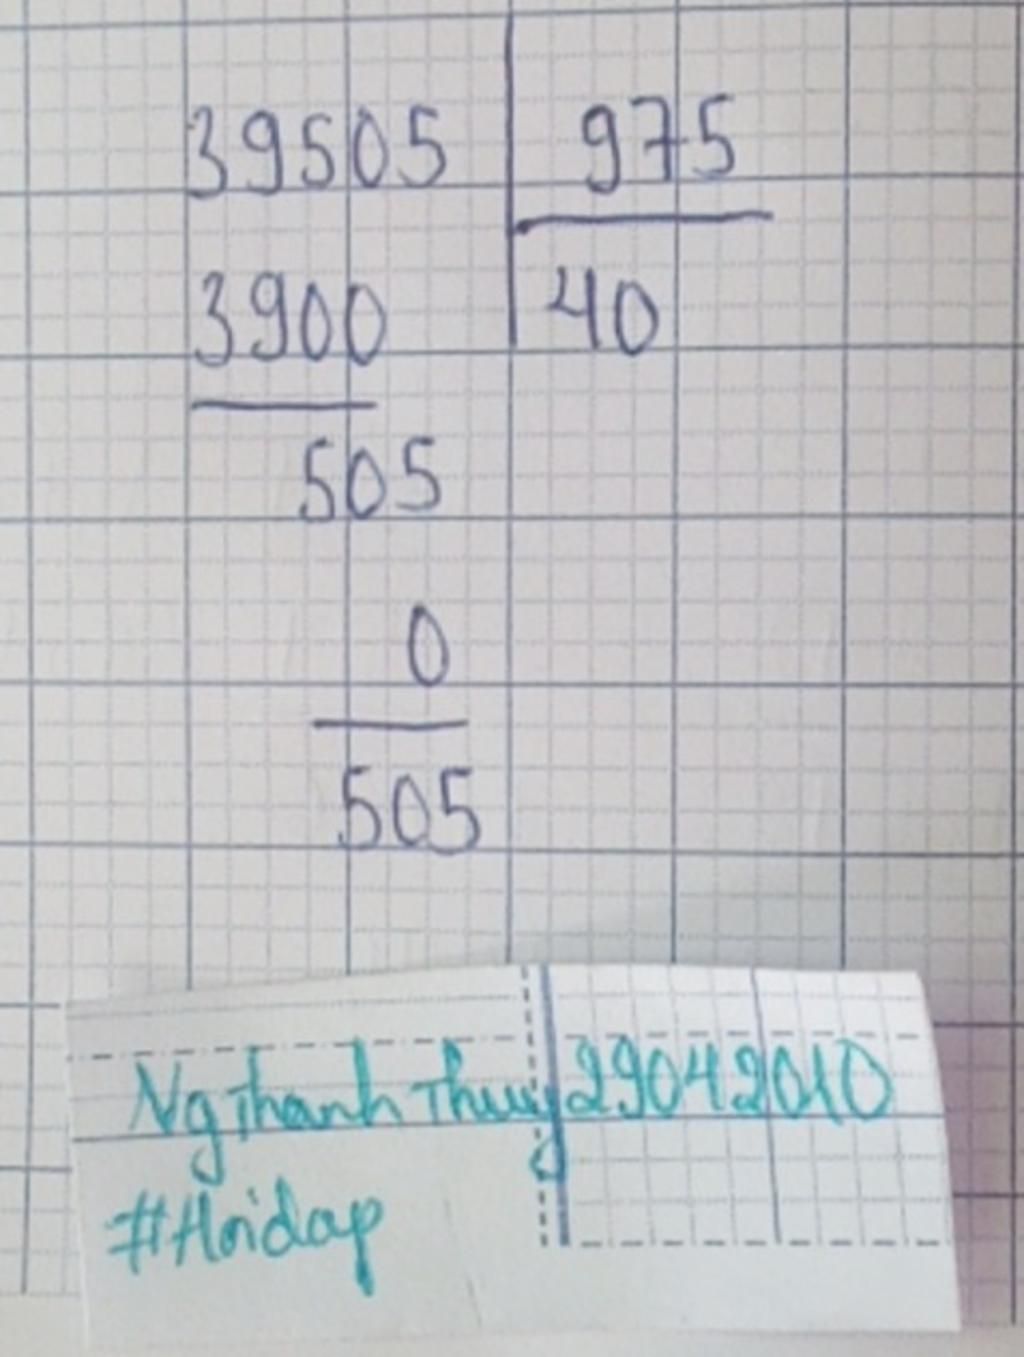 39505 975
3900 40
505
0
505
NgThanhThuy29042010
#Hoidap